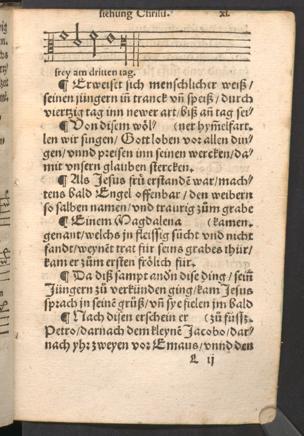 stehung Christi. xl.
frey am dritten tag.
¶ Erweiset sich menschlicher weiß/
seinen jüngern im tranck vn̄ speiß/durch
viertzig tag inn newer art/biß an̄ tag sei⸗
Von disem wöl/ (ner hym̄elfart.
len wir singen/Gott loben vor allen din⸗
gen/vnnd preisen inn seinen wercken/da⸗
mit vnsern glauben stercken.
¶ Als Jesus frü erstandē war/mach⸗
tens bald Engel offenbar/den weibern
so salben namen/vnd traurig zům grabe
¶ Einem Magdalena (kamen.
genant/welchs in fleissig sücht vnd nicht
fandt/weynēt trat für seins grabes thür/
kam er zům ersten frölich für.
¶ Da diß sampt anōn dise ding/sein̄
Jüngern zů verkünden ging/kam Jesus
sprach in seinē grüß/vn̄ sye fielen jm bald
¶ Nach disen erschein er (zů füssz.
Petro/darnach dem kleynē Jacobo/dar⸗
nach yhr zweyen vor Emaus/vnnd den
L ij